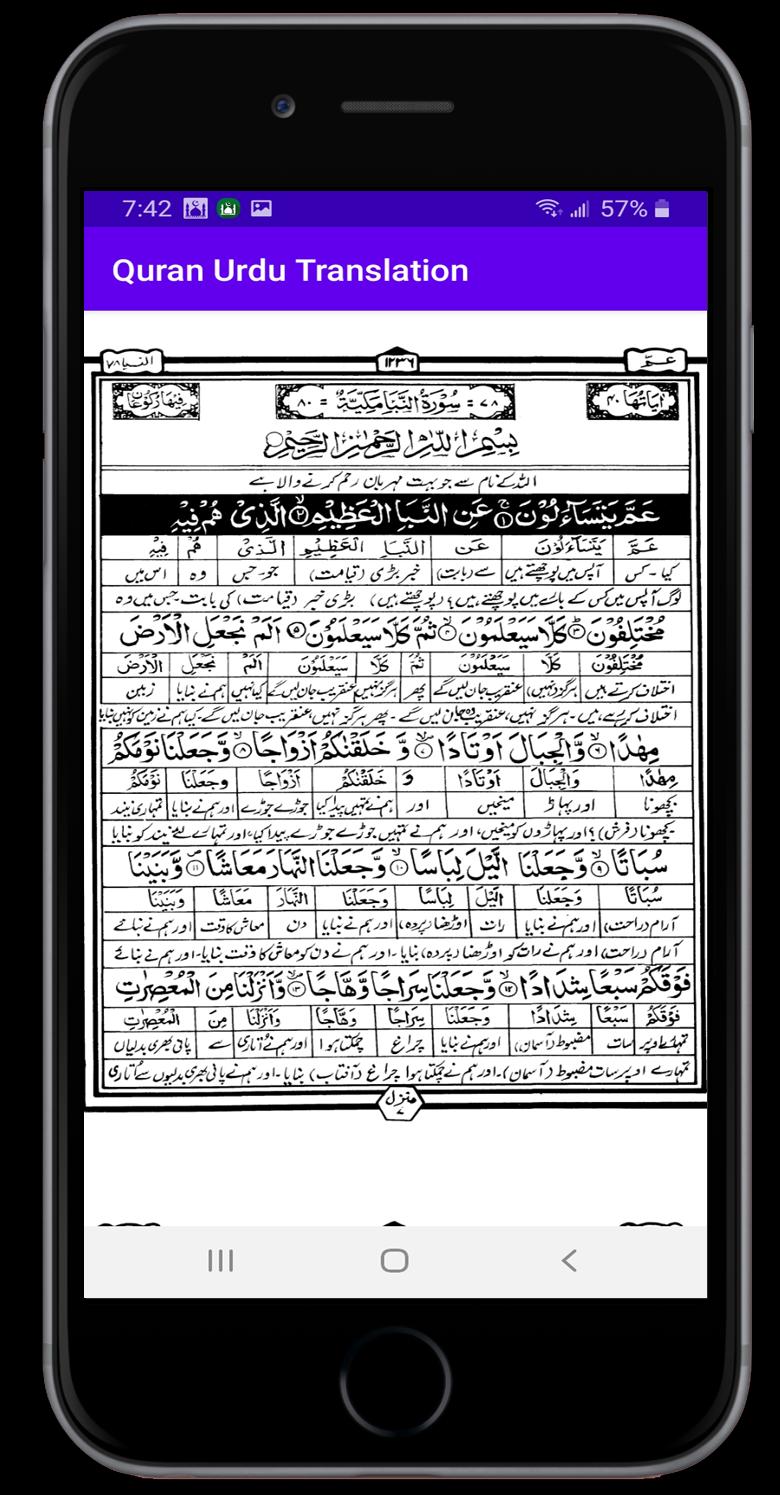 7:42 57%
Quran Urdu Translation
عمّ ١٢٣٦ النبا ٧٨
اٰیَاتُهَا ٤٠ ٧٨ = سُوْرَةُ النَّبَاِ مَكِّيَّةٌ = ٨٠ فِيْهَا رُكُوْعَانِ
بِسْمِ اللّٰهِ الرَّحْمٰنِ الرَّحِيْمِ
اللہ کے نام سے جو بہت مہربان رحم کرنے والا ہے
عَمَّ يَتَسَآءَلُوْنَ ۚ ١ عَنِ النَّبَاِ الْعَظِيْمِ ۙ ٢ الَّذِیْ هُمْ فِيْهِ
عَمَّ يَتَسَآءَلُوْنَ عَنِ النَّبَاِ الْعَظِيْمِ الَّذِیْ هُمْ فِيْهِ
کیا - کس آپس میں پوچھتے ہیں سے (بابت) خبر بڑی (قیامت) جو - جس وہ اس میں
لوگ آپس میں کس کے بارے میں پوچھتے ہیں؟ (پوچھتے ہیں) بڑی خبر (قیامت) کی بابت - جس میں وہ
مُخْتَلِفُوْنَ ۭ ٣ كَلَّا سَيَعْلَمُوْنَ ۙ ٤ ثُمَّ كَلَّا سَيَعْلَمُوْنَ ٥ اَلَمْ نَجْعَلِ الْاَرْضَ
مُخْتَلِفُوْنَ كَلَّا سَيَعْلَمُوْنَ ثُمَّ كَلَّا سَيَعْلَمُوْنَ اَلَمْ نَجْعَلِ الْاَرْضَ
اختلاف کرتے ہیں ہرگز (نہیں) عنقریب جان لیں گے پھر ہرگز نہیں عنقریب جان لیں گے کیا نہیں ہم نے بنایا زمین
اختلاف کر رہے ہیں - ہرگز نہیں، عنقریب وہ جان لیں گے - پھر ہرگز نہیں، عنقریب جان لیں گے - کیا ہم نے زمین کو نہیں بنایا
مِهٰدًا ۙ ٦ وَّالْجِبَالَ اَوْتَادًا ۙ ٧ وَّ خَلَقْنٰكُمْ اَزْوَاجًا ۙ ٨ وَّجَعَلْنَا نَوْمَكُمْ
مِهٰدًا وَّالْجِبَالَ اَوْتَادًا وَّ خَلَقْنٰكُمْ اَزْوَاجًا وَّجَعَلْنَا نَوْمَكُمْ
بچھونا اور پہاڑ میخیں اور ہم نے تمہیں پیدا کیا جوڑے جوڑے اور ہم نے بنایا تمہاری نیند
بچھونا (فرش)؟ اور پہاڑوں کو میخیں، اور ہم نے تمہیں جوڑے جوڑے پیدا کیا، اور تمہارے لئے نیند کو بنایا
سُبَاتًا ۙ ٩ وَّجَعَلْنَا الَّيْلَ لِبَاسًا ۙ ١٠ وَّجَعَلْنَا النَّهَارَ مَعَاشًا ١١ وَّبَنَيْنَا
سُبَاتًا وَّجَعَلْنَا الَّيْلَ لِبَاسًا وَّجَعَلْنَا النَّهَارَ مَعَاشًا وَّبَنَيْنَا
آرام (راحت) اور ہم نے بنایا رات اوڑھنا (پردہ) اور ہم نے بنایا دن معاش کا وقت اور ہم نے بنائے
آرام (راحت) اور ہم نے رات کو اوڑھنا (پردہ) بنایا - اور ہم نے دن کو معاش کا وقت بنایا - اور ہم نے بنائے
فَوْقَكُمْ سَبْعًا شِدَادًا ۙ ١٢ وَّجَعَلْنَا سِرَاجًا وَّهَّاجًا ١٣ وَّاَنْزَلْنَا مِنَ الْمُعْصِرٰتِ
فَوْقَكُمْ سَبْعًا شِدَادًا وَّجَعَلْنَا سِرَاجًا وَّهَّاجًا وَّاَنْزَلْنَا مِنَ الْمُعْصِرٰتِ
تمہارے اوپر سات مضبوط (آسمان) اور ہم نے بنایا چراغ چمکتا ہوا اور ہم نے اُتاری سے پانی بھری بدلیاں
تمہارے اوپر سات مضبوط (آسمان) - اور ہم نے چمکتا ہوا چراغ (آفتاب) بنایا - اور ہم نے پانی بھری بدلیوں سے اُتاری
منزل ٧